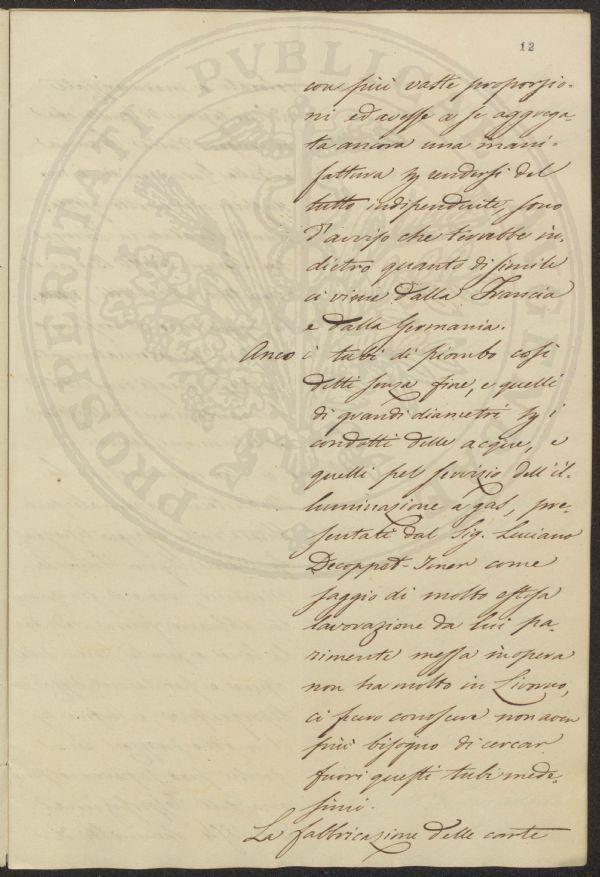 12
PROSPERITATI PVBLICAE
con più vaste proporzio-
ni ed avesse a se aggrega-
ta ancora una mani-
fattura p rendersi del
tutto indipendente, sono
d'avviso che terrebbe in-
dietro quanto di simile
ci viene dalla Francia
e dalla Germania.
Anco i tubi di piombo così
detti senza fine, e quelli
di grandi diametri p i
condotti delle acque, e
quelli pel servizio dell'il-
luminazione a gas, pre-
sentati dal Sig. Luciano
Decoppet-Jener come
saggio di molto estesa
lavorazione da lui pa-
rimente messa in opera
non ha molto in Livorno,
ci fecero conoscere non aver
più bisogno di cercar
fuori questi tubi mede-
simi.
La fabbricazione delle carte